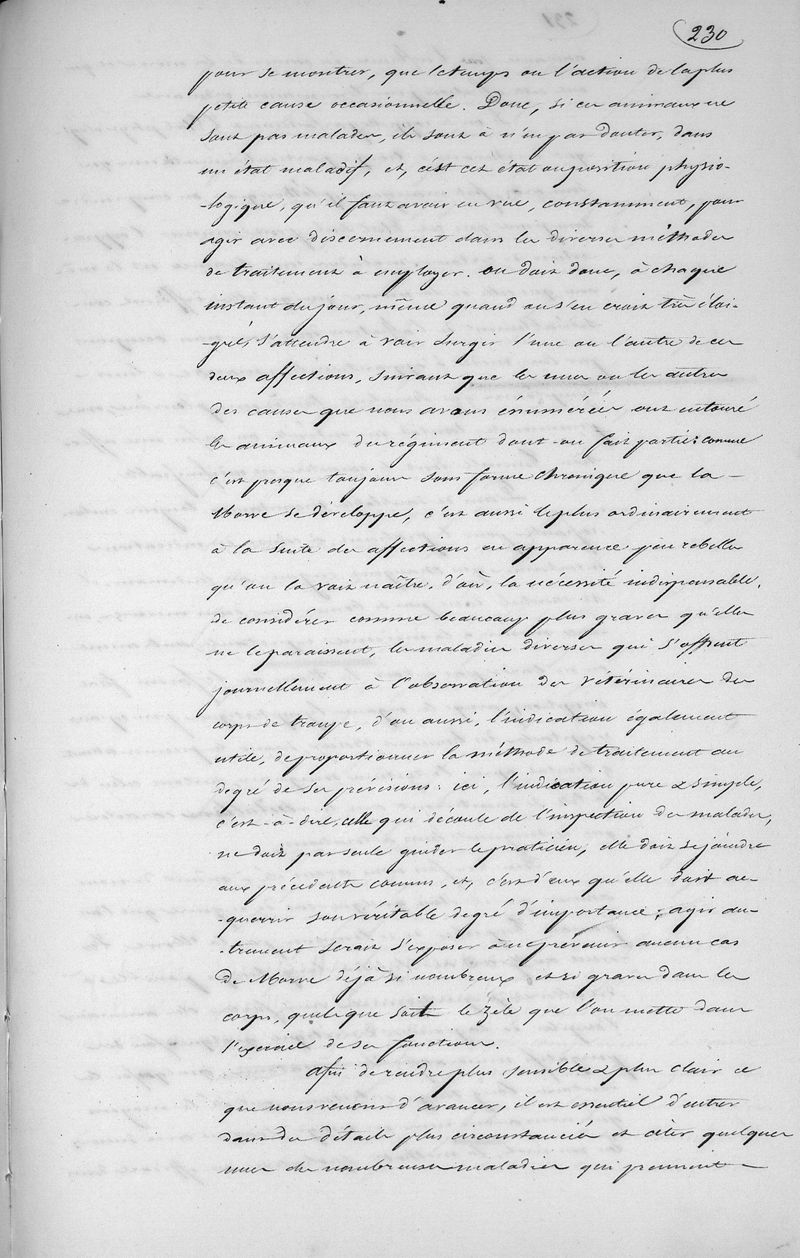 230
pour se montrer, que le temps ou l'action de la plus
petite cause occasionnelle. Donc, si ces animaux ne
sont pas malades, ils sont à n'en pas douter, dans
un état maladif, et, c'est cet état ou position physio-
-logique, qu'il faut avoir en vue, constamment, pour
agir avec discernement dans les diverses méthodes
de traitement à employer. on doit donc, à chaque
instant du jour, même quand on s'en croit très éloi-
-gné, s'attendre à voir surgir l'une ou l'autre de ces
deux affections, suivant que les unes ou les autres
des causes que nous avons énumérées ont entouré
les animaux du régiment dont on fait partie: comme
c'est presque toujours sous forme chronique que la
Morve se développe, c'est aussi le plus ordinairement
à la suite des affections en apparence peu rebelles
qu'on la voit naître, d'où, la nécessité indispensable,
de considérer comme beaucoup plus graves qu'elles
ne le paraissent, les maladies diverses qui s'offrent
journellement à l'observation des vétérinaires des
corps de troupe, d'ou aussi, l'indication également
utile, de proportionner la méthode de traitement au
degré de ses prévisions: ici, l'indication pure & simple,
c'est-à-dire, celle qui découle de l'inspection des malades,
ne doit pas seule guider le praticien, elle doit se joindre
aux précédents connus, et, c'est d'eux qu'elle doit ac-
-querrir son véritable degré d'importance; agir au-
-trement serait s'exposer à ne prévenir aucun cas
de Morve déjà si nombreux et si graves dans les
corps, quelque soit le zèle que l'on mette dans
l'exercice de ses fonctions.
Afin de rendre plus sensible & plus clair ce
que nous venons d'avancer, il est essentiel d'entrer
dans des détails plus circonstanciés et citer quelques
unes des nombreuses maladies qui peuvent